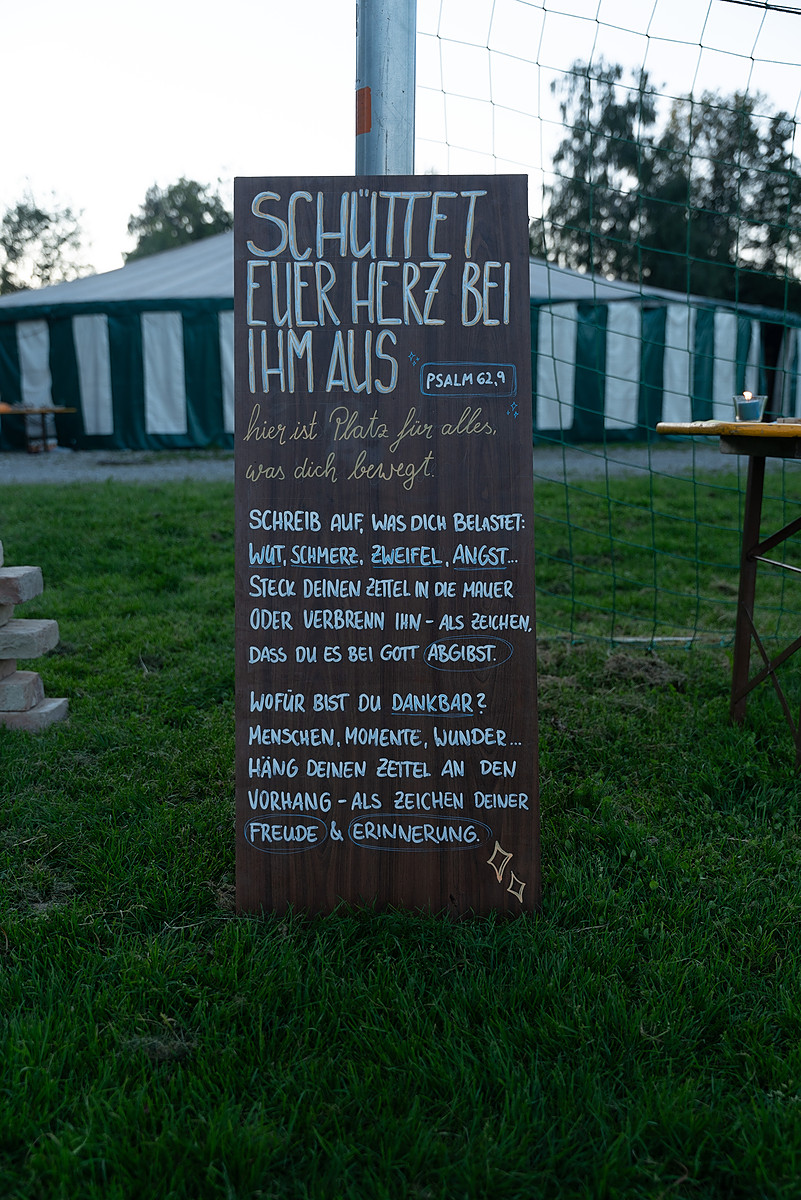 SCHÜTTET
EUER HERZ BEI
IHM AUS
PSALM 62,9
hier ist Platz für alles,
was dich bewegt.
SCHREIB AUF, WAS DICH BELASTET:
WUT, SCHMERZ, ZWEIFEL, ANGST...
STECK DEINEN ZETTEL IN DIE MAUER
ODER VERBRENN IHN - ALS ZEICHEN,
DASS DU ES BEI GOTT ABGIBST.
WOFÜR BIST DU DANKBAR?
MENSCHEN, MOMENTE, WUNDER...
HÄNG DEINEN ZETTEL AN DEN
VORHANG - ALS ZEICHEN DEINER
FREUDE & ERINNERUNG.